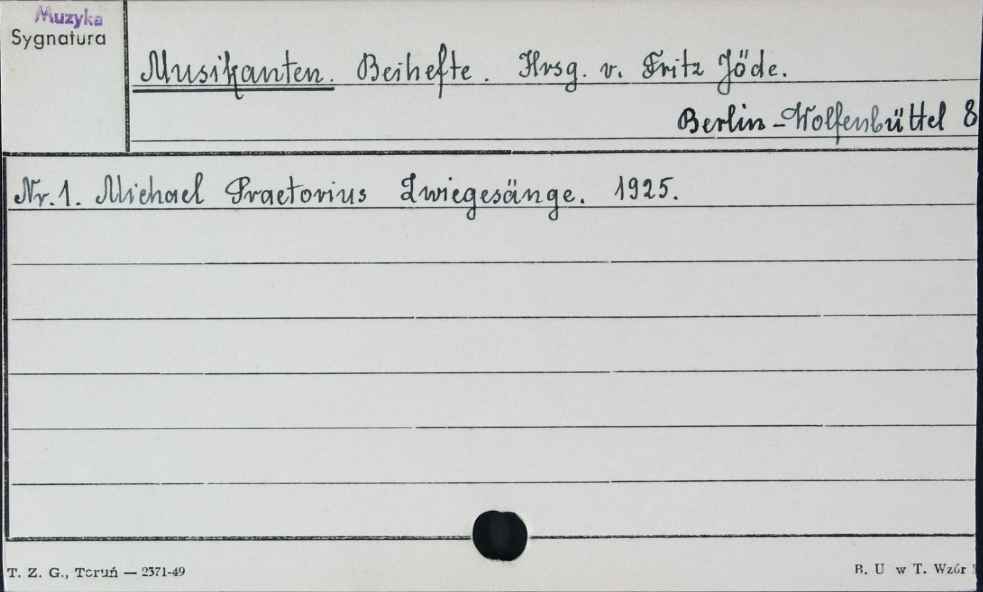 Muzyka
Sygnatura
Musikanten. Beihefte. Hrsg. v. Fritz Jöde.
Berlin-Wolfenbüttel 8
Nr. 1. Michael Praetorius Zwiegesänge. 1925.
T. Z. G., Toruń — 2371-49
B. U w T. Wzór